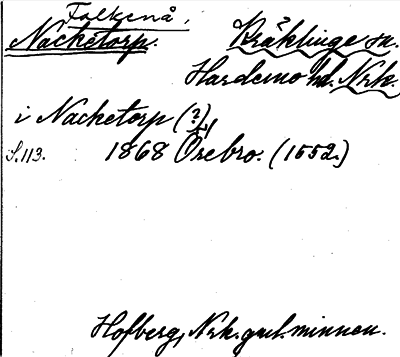 Falkenå,
Nacketorp. Kräklinge sn.
Hardemo hd. Nrk.
i Nacketorp (?)
S. 113. 1868 Örebro. (1552.)
Hofberg, Nrk. gml. minnen.